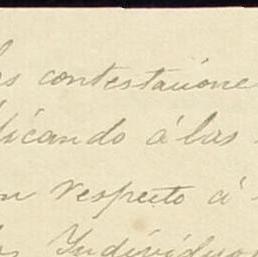 los contestacione
licando á las
n respecto á
los Individuo